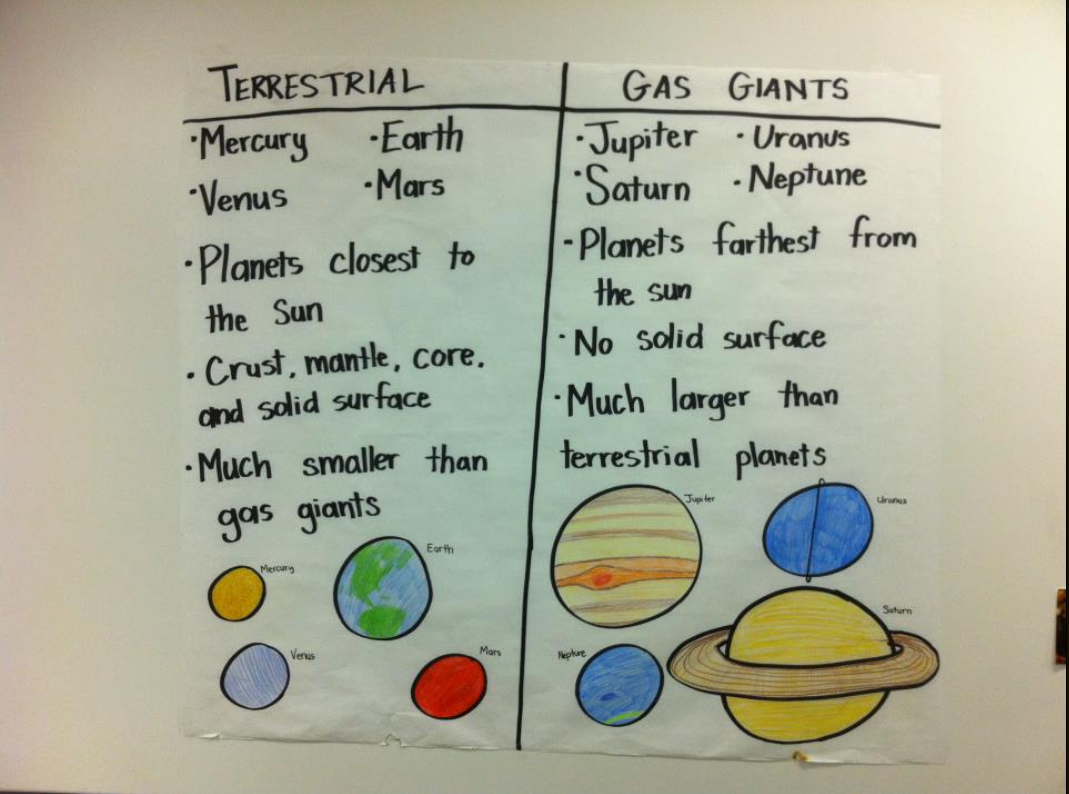 TERRESTRIAL
·Mercury ·Earth
·Venus ·Mars
·Planets closest to
the Sun
·Crust, mantle, core,
and solid surface
·Much smaller than
gas giants
Mercury
Earth
Venus
Mars
GAS GIANTS
·Jupiter ·Uranus
·Saturn ·Neptune
·Planets farthest from
the sun
·No solid surface
·Much larger than
terrestrial planets
Jupiter
Uranus
Saturn
Neptune